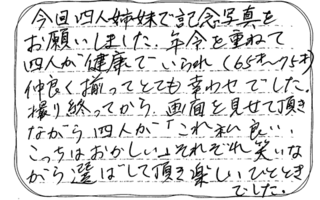 今回四人姉妹で記念写真を
お願いしました。年令を重ねて
四人が健康でいられ（65才～75才）
仲良く揃ってとても幸わせでした。
撮り終ってから、画面を見せて頂き
ながら四人が「これ私良い、
こっちはおかしい」それぞれ笑いな
がら選ばして頂き楽しいひととき
でした。